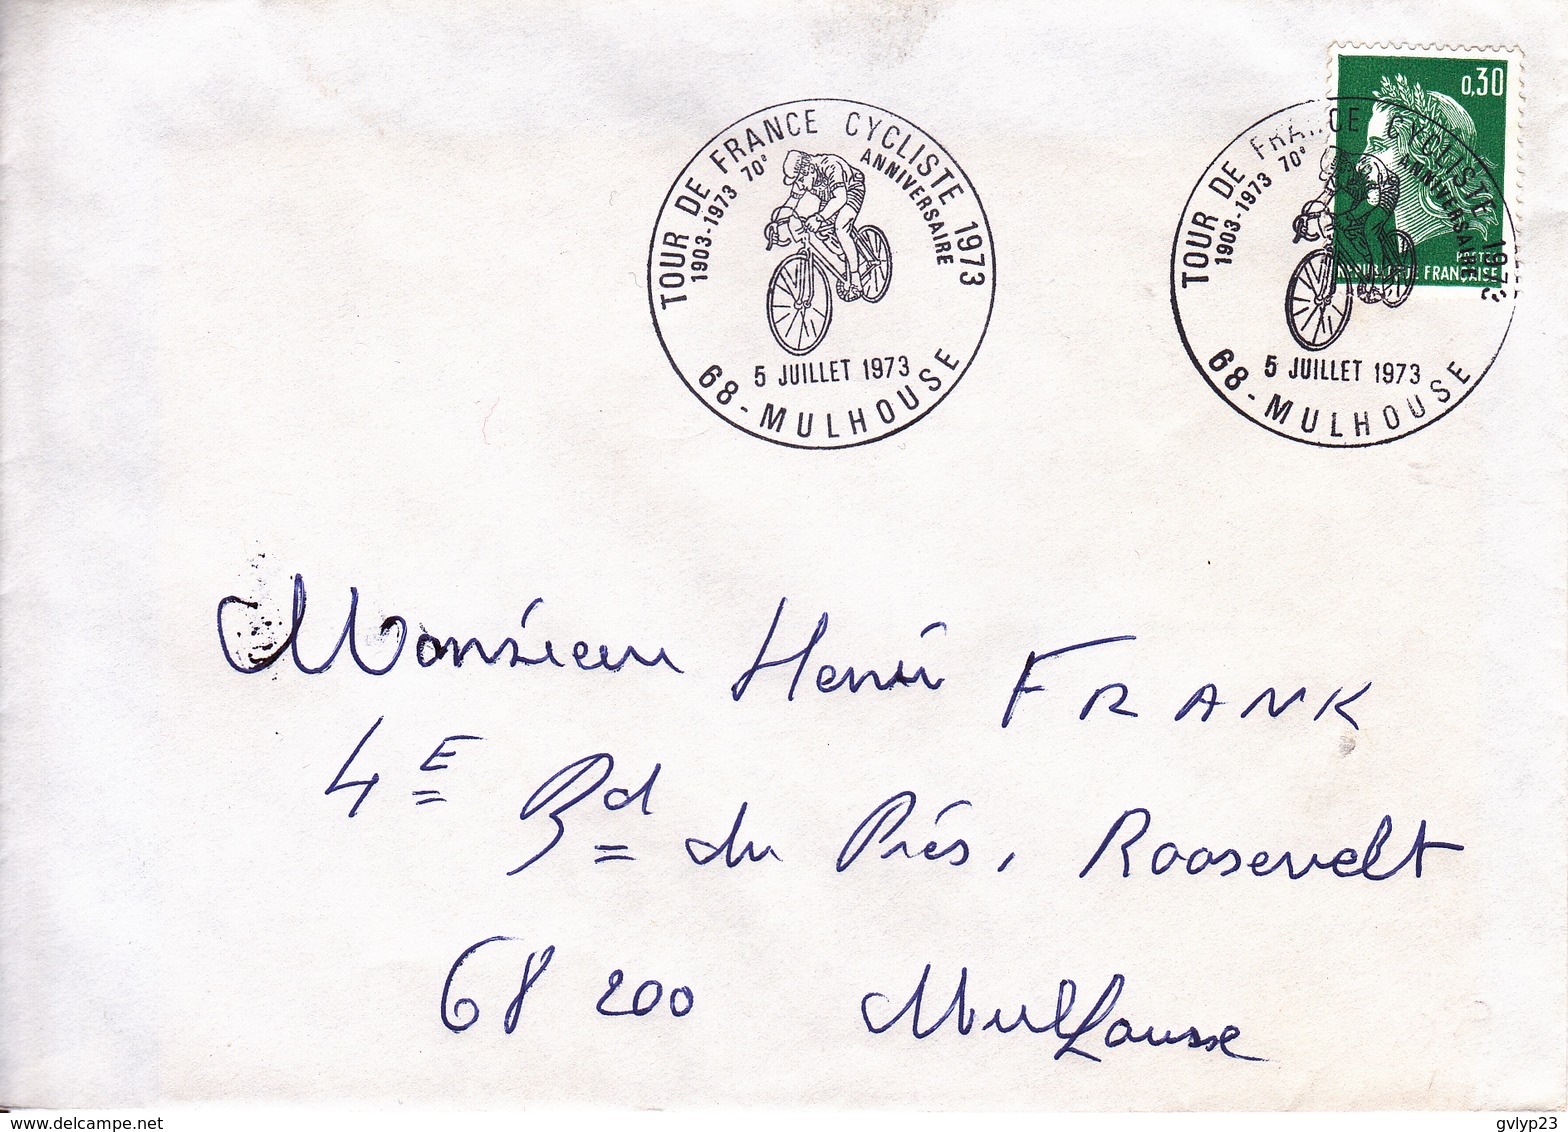 TOUR DE FRANCE CYCLISTE 1973
1903-1973 70e ANNIVERSAIRE
5 JUILLET 1973
68-MULHOUSE
0,30
POSTES
RÉPUBLIQUE FRANÇAISE
TOUR DE FRANCE CYCLISTE 1973
1903-1973 70e ANNIVERSAIRE
5 JUILLET 1973
68-MULHOUSE
Monsieur Henri FRANK
4E Bd du Prés. Roosevelt
68 200 Mulhouse
www.delcampe.net
gvlyp23